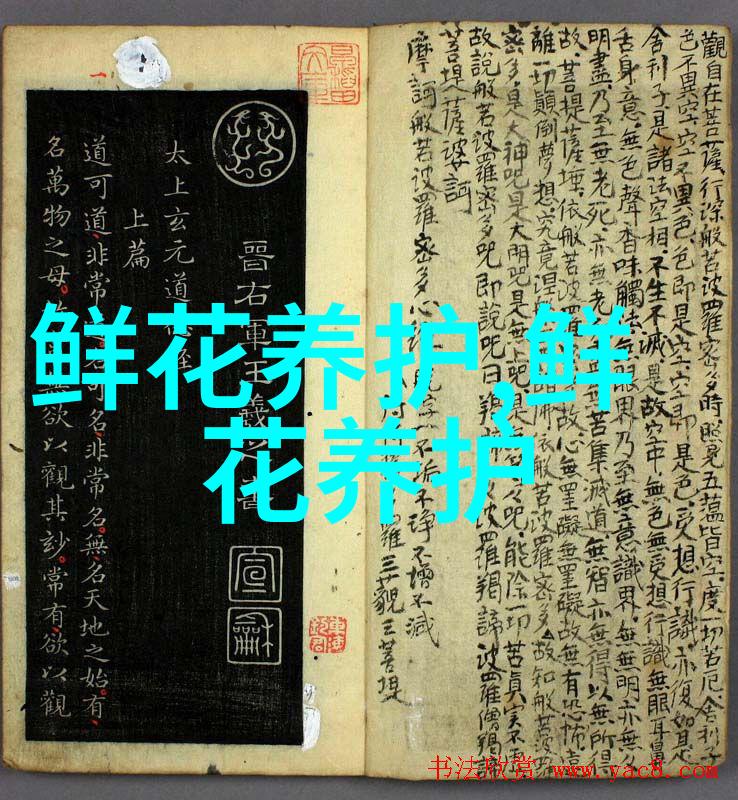 鲜花养护,鲜
花养护
觀自在菩薩行深般若波羅密多時照見五蘊皆空度一切苦厄舍利子
色不異空空不異色色即是空空即是色受想行識亦復如是
舍利子是諸法空相不生不滅是故空中無色無受想行識無眼耳鼻
舌身意無色聲香味觸法無眼界乃至無意識界無無明亦無
明盡乃至無老死亦無老 無苦集滅道無智亦無得以無所得
故菩提薩埵依般若波羅 故心無罣礙無罣礙故無有恐怖遠
離一切顛倒夢想究竟涅 諸佛依般若波羅密多故知般若波羅
密多是大神咒是大明咒是無上咒是 咒能除一切苦真實不虛
故說般若波羅密多咒即說咒曰羯 波羅羯諦波羅僧羯諦
菩提薩婆訶
不垢不淨不增不減
摩訶般若波羅密多心經
羅三藐三菩提
晉右軍王羲之書
宣
龢
太上玄元道德經
上篇
道可道非常 名可名非常名。無名天地之始。有
名萬物之母。 無欲以觀其妙。常有欲以觀
书法欣赏 www.yac8.com